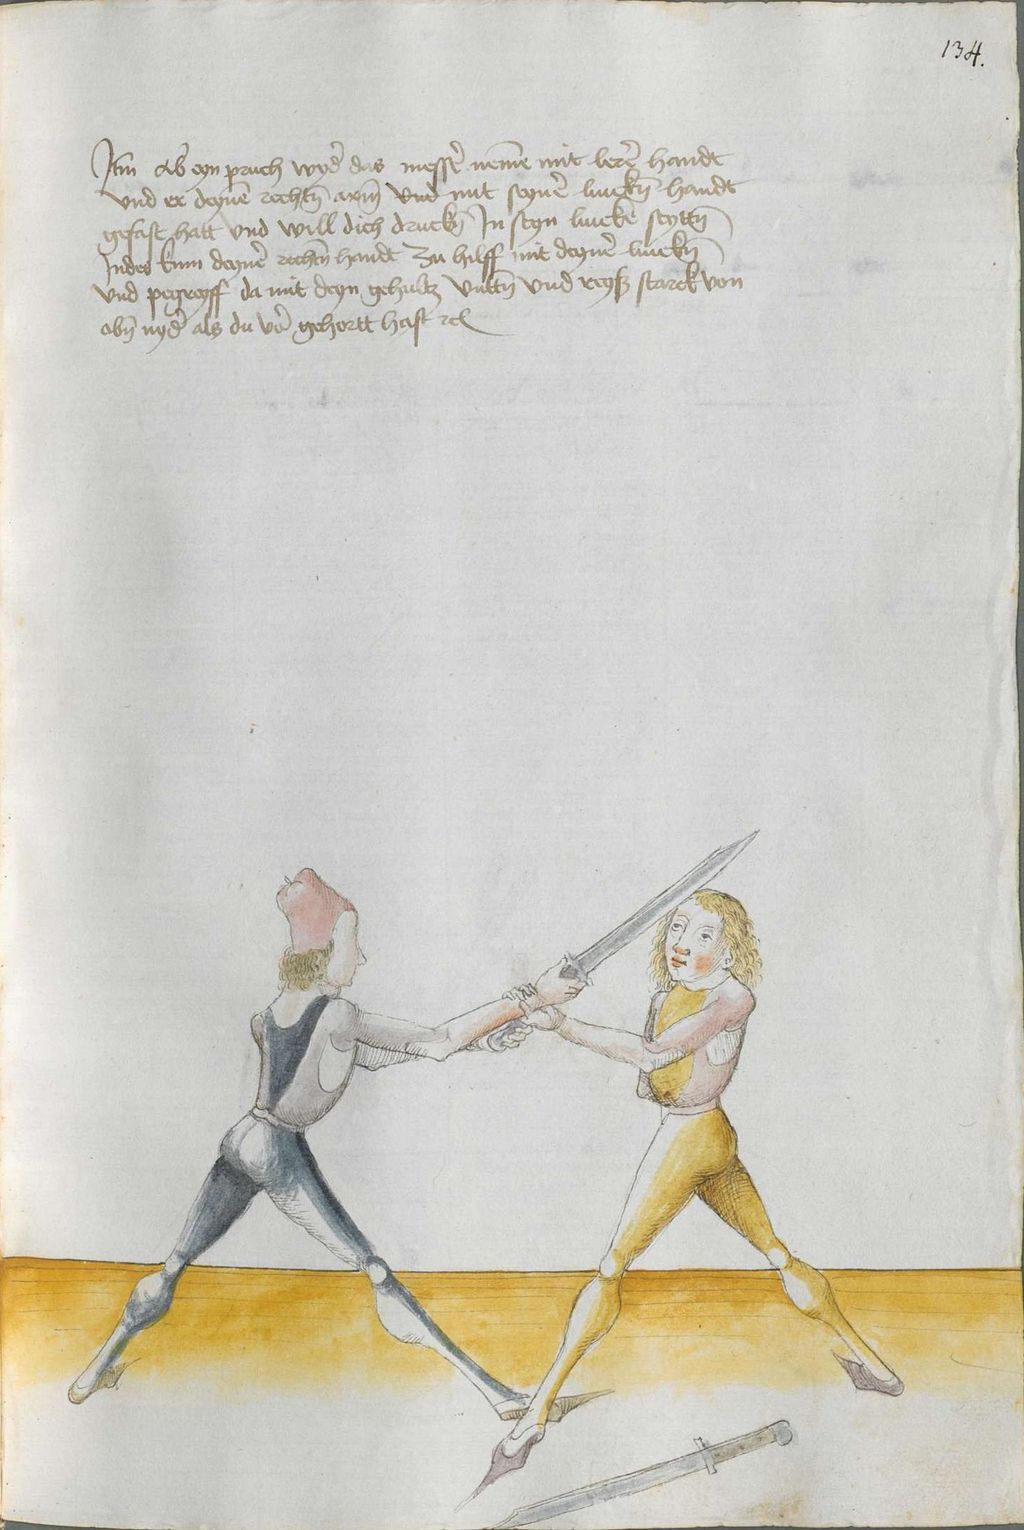 134.
Itm Ab eyn pruch wyd̄ das messer nemē mit lerē handt
vnd er deynē rechtn̄ arm̄ vnd mit seynē linckn̄ handt
gefast hatt vnd will dich druckn̄ In seyn lincke seyttn̄
Indes kum deynē rechtn̄ handt Zu hilff mit deynē linckn̄
vnd pegreyff da mit deyn gehultz vnttn̄ vnd reyß starck von
obn̄ nyd̄ als du vor̄ gehortt hast